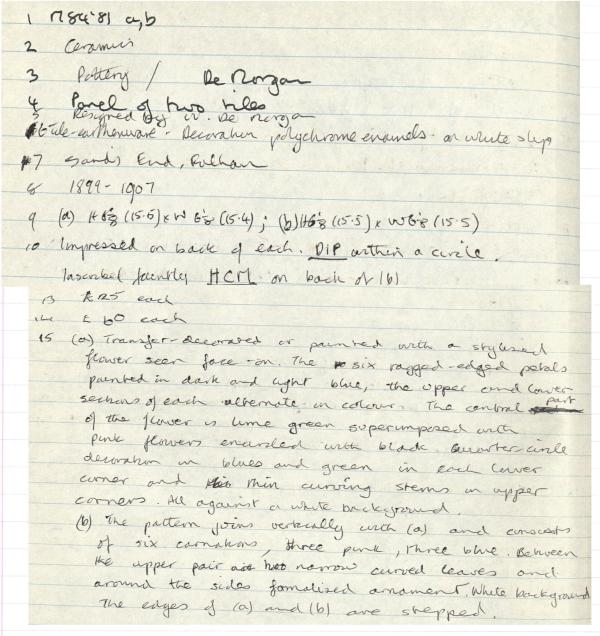 1 M84'81 a,b
2 Ceramics
3 Pottery / De Morgan
4 Panel of two tiles
5 Designed by W. De Morgan
6 tile-earthenware - Decoration polychrome enamels on white slip
7 Sands End, Fulham
8 1899 - 1907
9 (a) H 6⅛ (15.6) x W 6⅛ (15.4) ; (b) H 6⅛ (15.5) x W 6⅛ (15.5)
10 Impressed on back of each. DIP within a circle.
Inscribed faintly HCM on back of (b)
13 £125 each
14 £ 60 each
15 (a) Transfer-decorated or painted with a stylised
flower seen face-on. The six ragged-edged petals
painted in dark and light blue, the upper and lower
sections of each alternate in colour. The central part
of the flower is lime green superimposed with
pink flowers encircled with black. Quarter-circle
decoration in blues and green in each lower
corner and thin curving stems in upper
corners. All against a white background.
(b) The pattern joins vertically with (a) and consists
of six carnations, three pink, three blue. Between
the upper pair are two narrow curved leaves and
around the sides formalised ornament. White background
The edges of (a) and (b) are stepped.